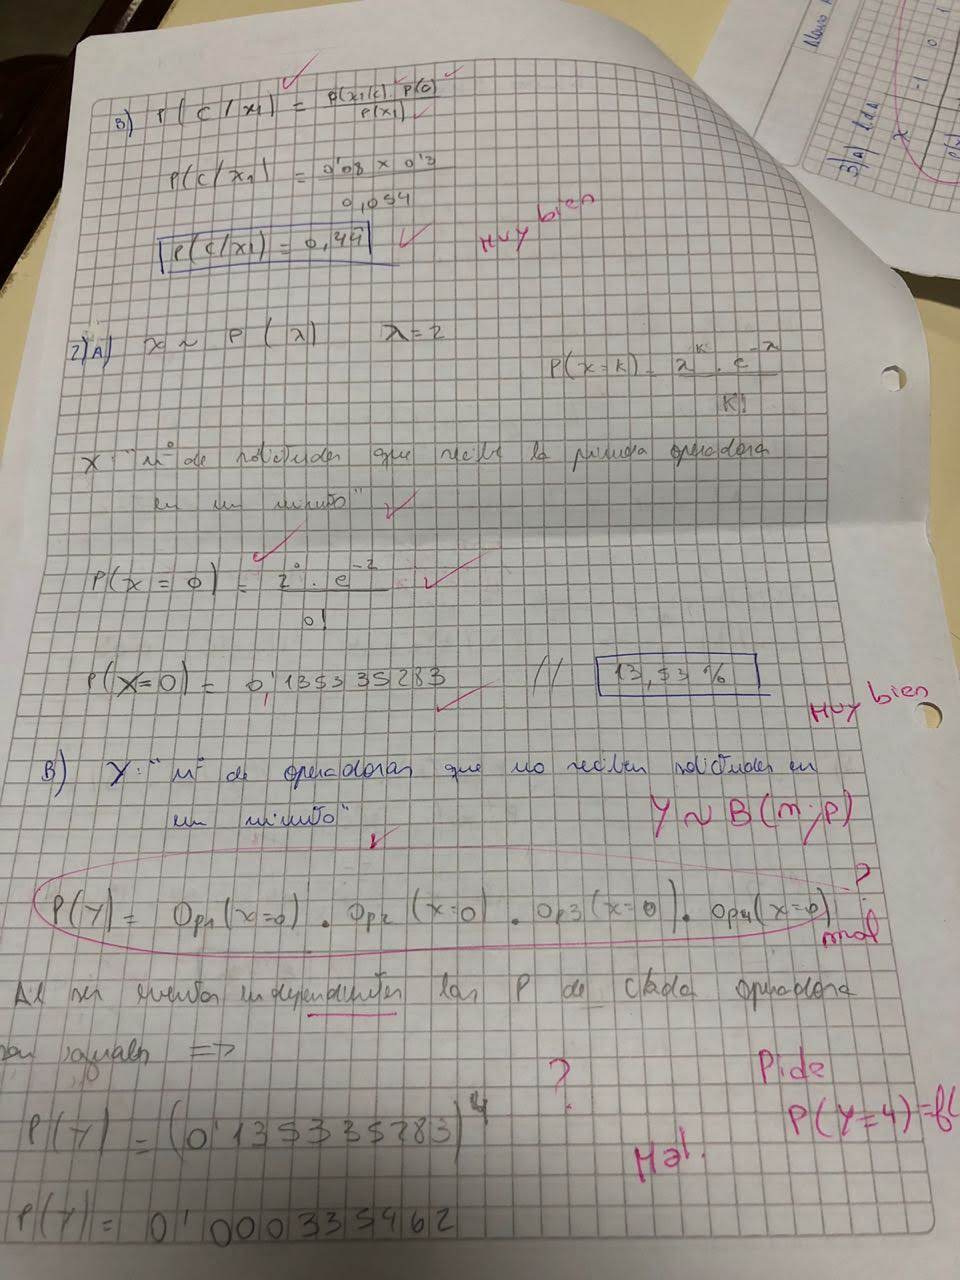 B) P(C/X1) = P(X1/C) · P(C) / P(X1)
P(C/X1) = 0'08 x 0'3 / 0,054
P(C/X1) = 0,44
Muy bien
2) A) X ~ P(λ) λ = 2
P(X=K) = λ^K · e^-λ / K!
X: "nº de solicitudes que recibe la primera operadora
en un minuto"
P(X = 0) = 2^0 · e^-2 / 0!
P(X=0) = 0'135335283 // 13,53 %
Muy bien
B) Y: "nº de operadoras que no reciben solicitudes en
un minuto"
Y ~ B(n; p)
P(Y) = Op1(X=0) · Op2(X=0) · Op3(X=0) · Op4(X=0)
?
mal
Al ser eventos independientes las P de cada operadora
son iguales =>
Pide
P(Y=4) =
P(Y) = (0'135335283)^4
?
Mal.
P(Y) = 0'000335462
Nano
3) A)
-1 0 1
X